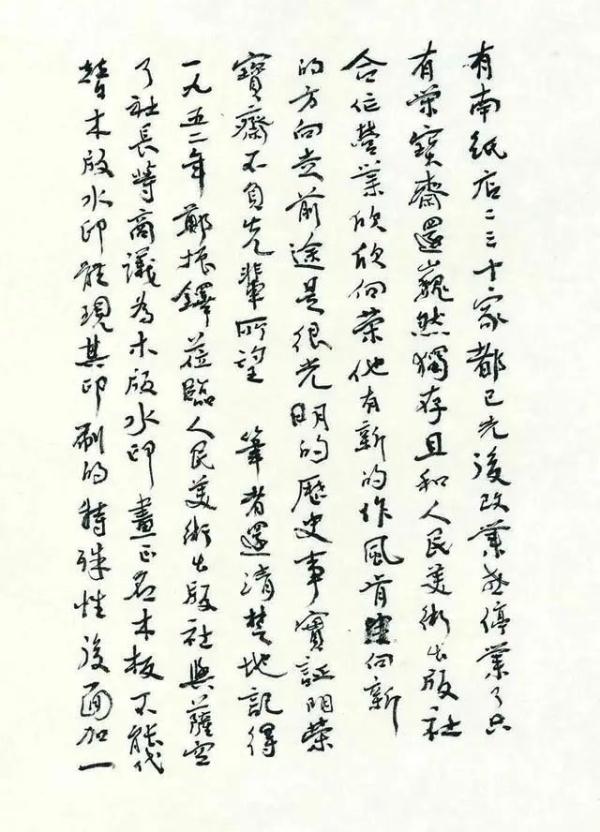 有南紙店二三十家都已先後改業或停業了只
有榮寶齋還巍然獨存且和人民美術出版社
合位營業欣欣向榮他有新的作風肯向新
的方向走前途是很光明的歷史事實証明榮
寶齋不負先輩所望 筆者還清楚地記得
一九五二年鄭振鐸蒞臨人民美術出版社與薩空
了社長等商議為木版水印畫正名木板不能代
替木版水印體現其印刷的特殊性後面加一